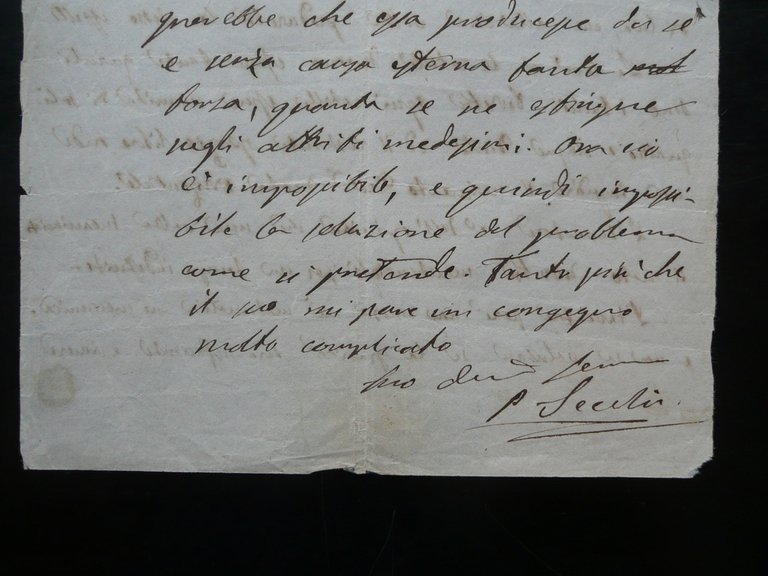 che essa producesse da se
e senza causa esterna tanta
forza, quanta se ne estingue
negli attriti medesimi. Ora ciò
è impossibile, e quindi impossi-
bile la soluzione del problema
come si pretende. Tanto più che
il suo mi pare un congegno
molto complicato
Suo
P Secchi